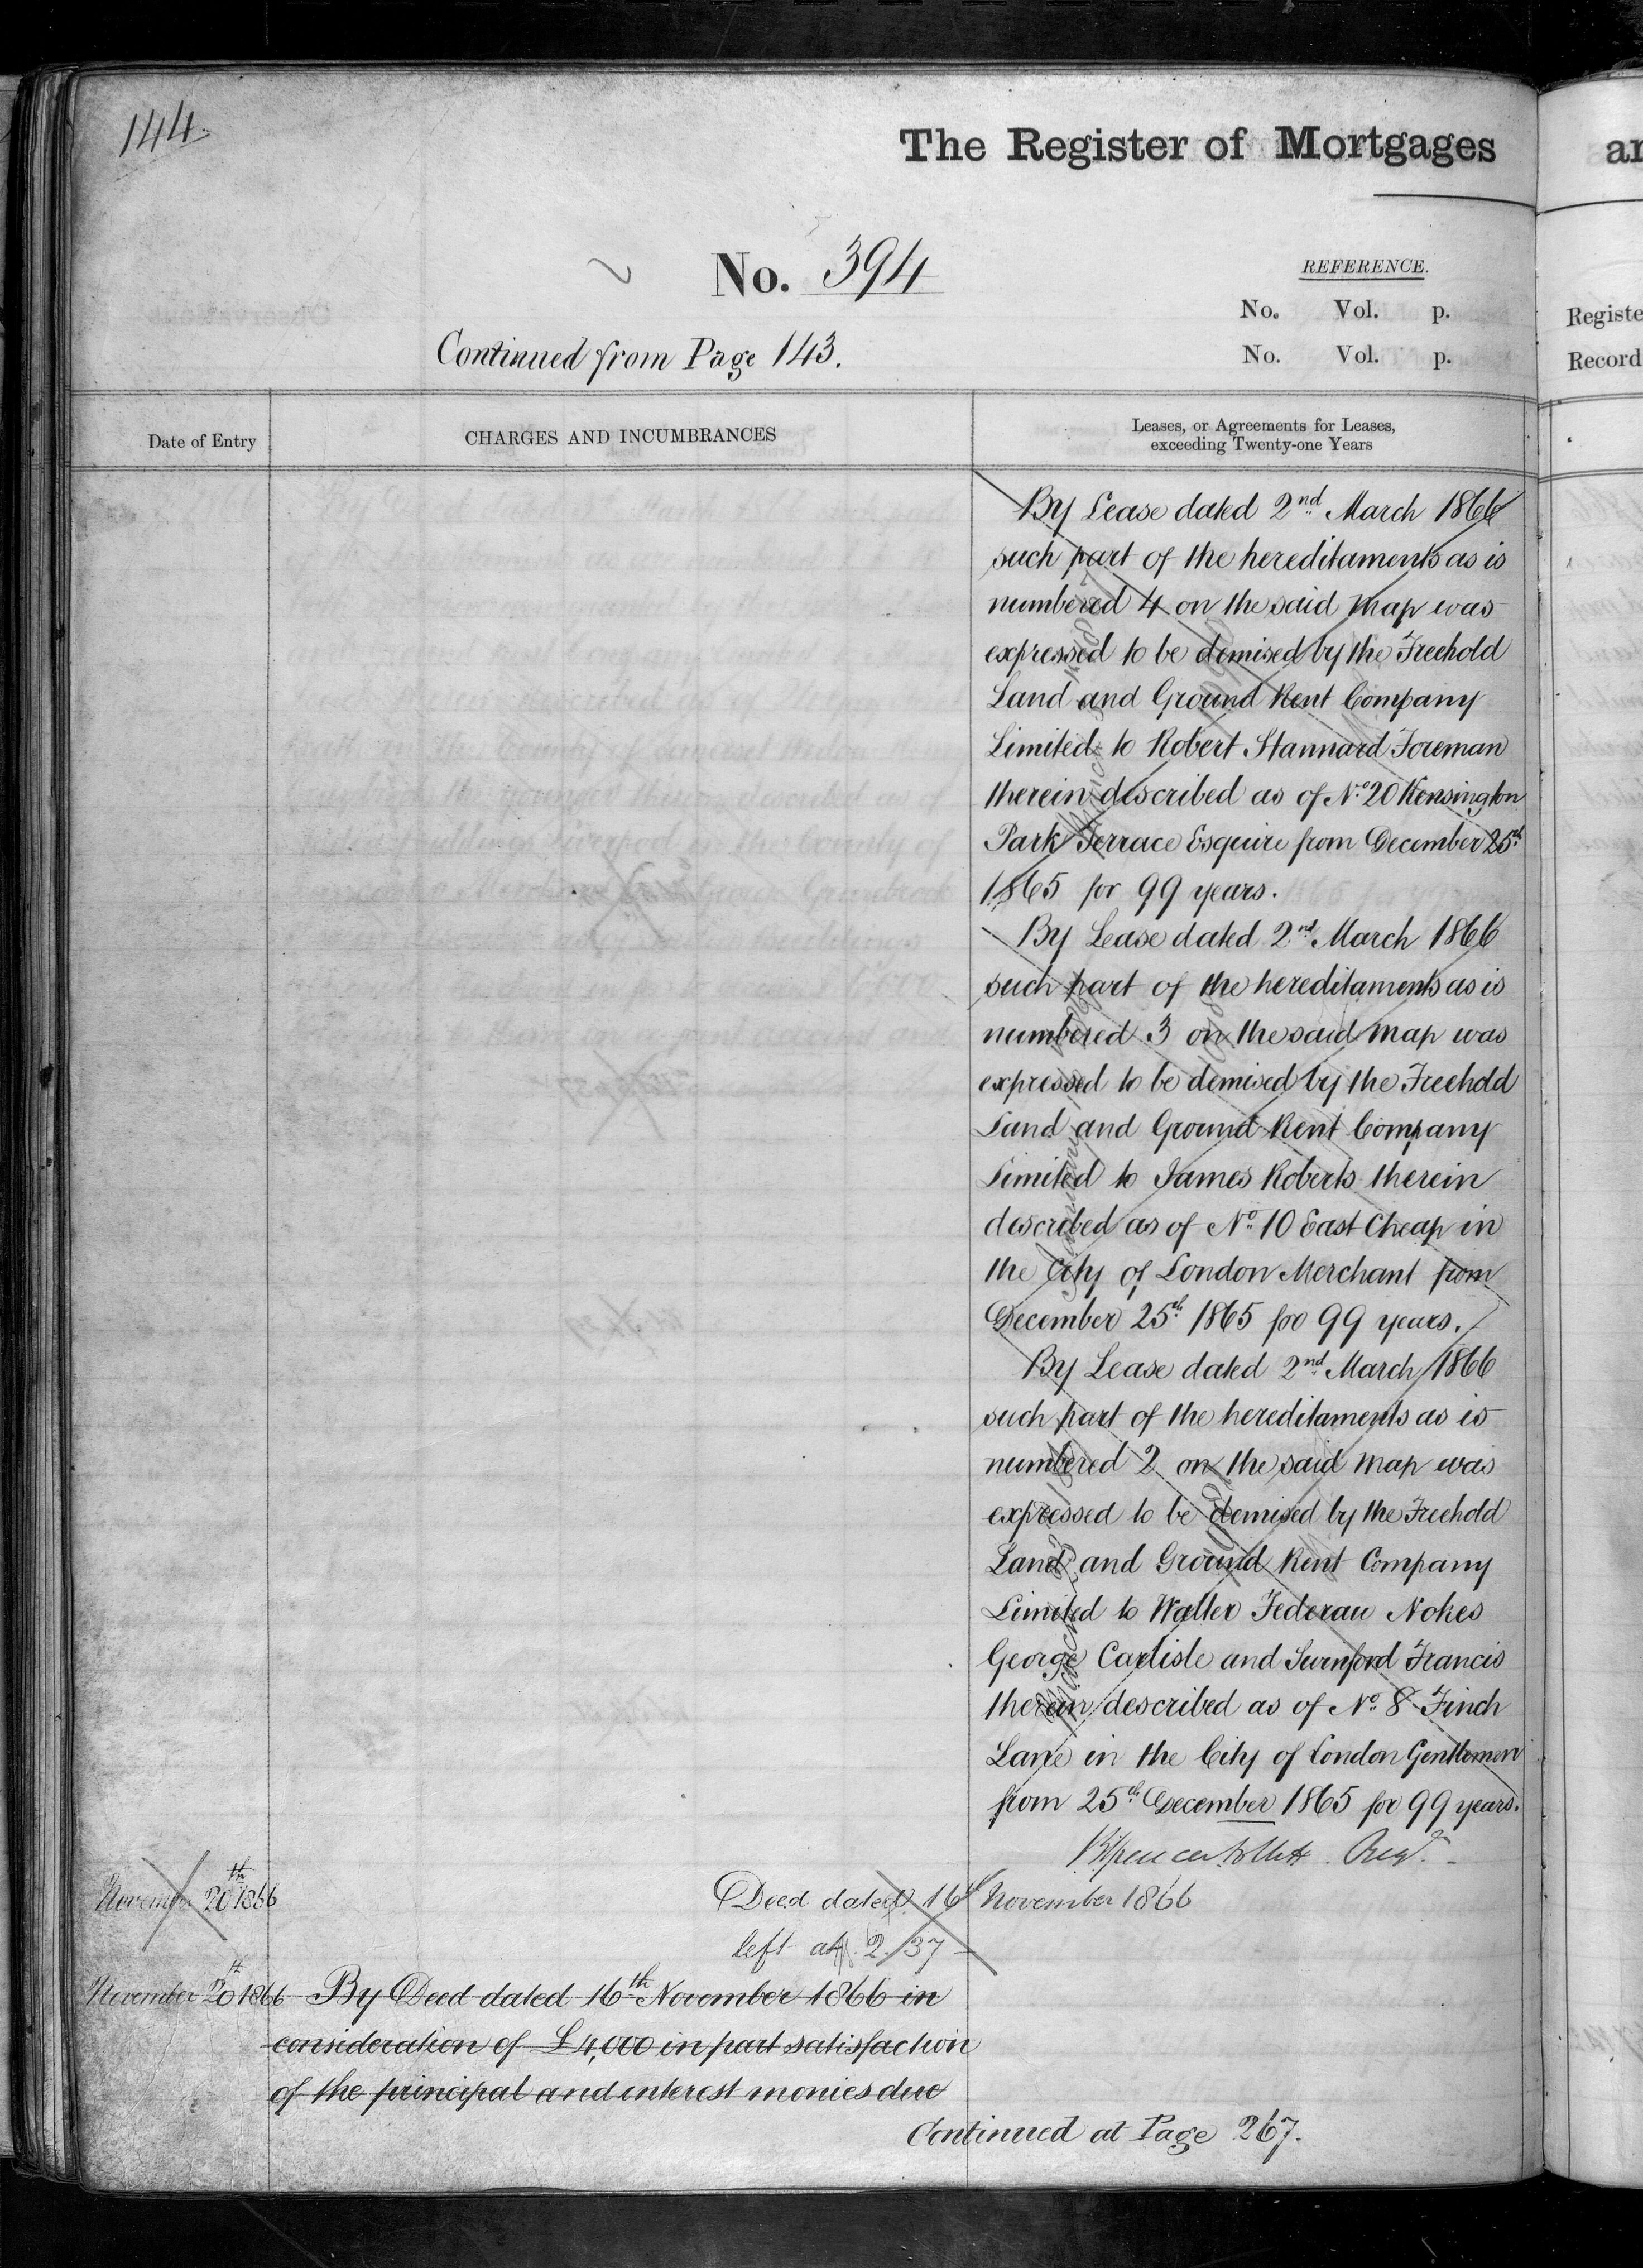 144.
The Register of Mortgages
No. 394
REFERENCE.
No. Vol. p.
No. Vol. p.
Continued from Page 143.
Date of Entry
CHARGES AND INCUMBRANCES
Leases, or Agreements for Leases,
exceeding Twenty-one Years
By Lease dated 2nd March 1866
such part of the hereditaments as is
numbered 4 on the said Map was
expressed to be demised by the Freehold
Land and Ground Rent Company
Limited to Robert Stannard Foreman
therein described as of No. 20 Kensington
Park Terrace Esquire from December 25th
1865 for 99 years.
By Lease dated 2nd March 1866
such part of the hereditaments as is
numbered 3 on the said Map was
expressed to be demised by the Freehold
Land and Ground Rent Company
Limited to James Roberts therein
described as of No. 10 East Cheap in
the City of London Merchant from
December 25th 1865 for 99 years.
By Lease dated 2nd March 1866
such part of the hereditaments as is
numbered 2 on the said Map was
expressed to be demised by the Freehold
Land and Ground Rent Company
Limited to Walter Federau Nokes
George Carlisle and Francis
therein described as of No. 8 Finch
Lane in the City of London Gentlemen
from 25th December 1865 for 99 years.
November 20th 1866
Deed dated 16th November 1866
left at 2/37
November 20th 1866 By Deed dated 16th November 1866 in
consideration of £4,000 in part satisfaction
of the principal and interest monies due
Continued at Page 267.
ar
Registe
Record